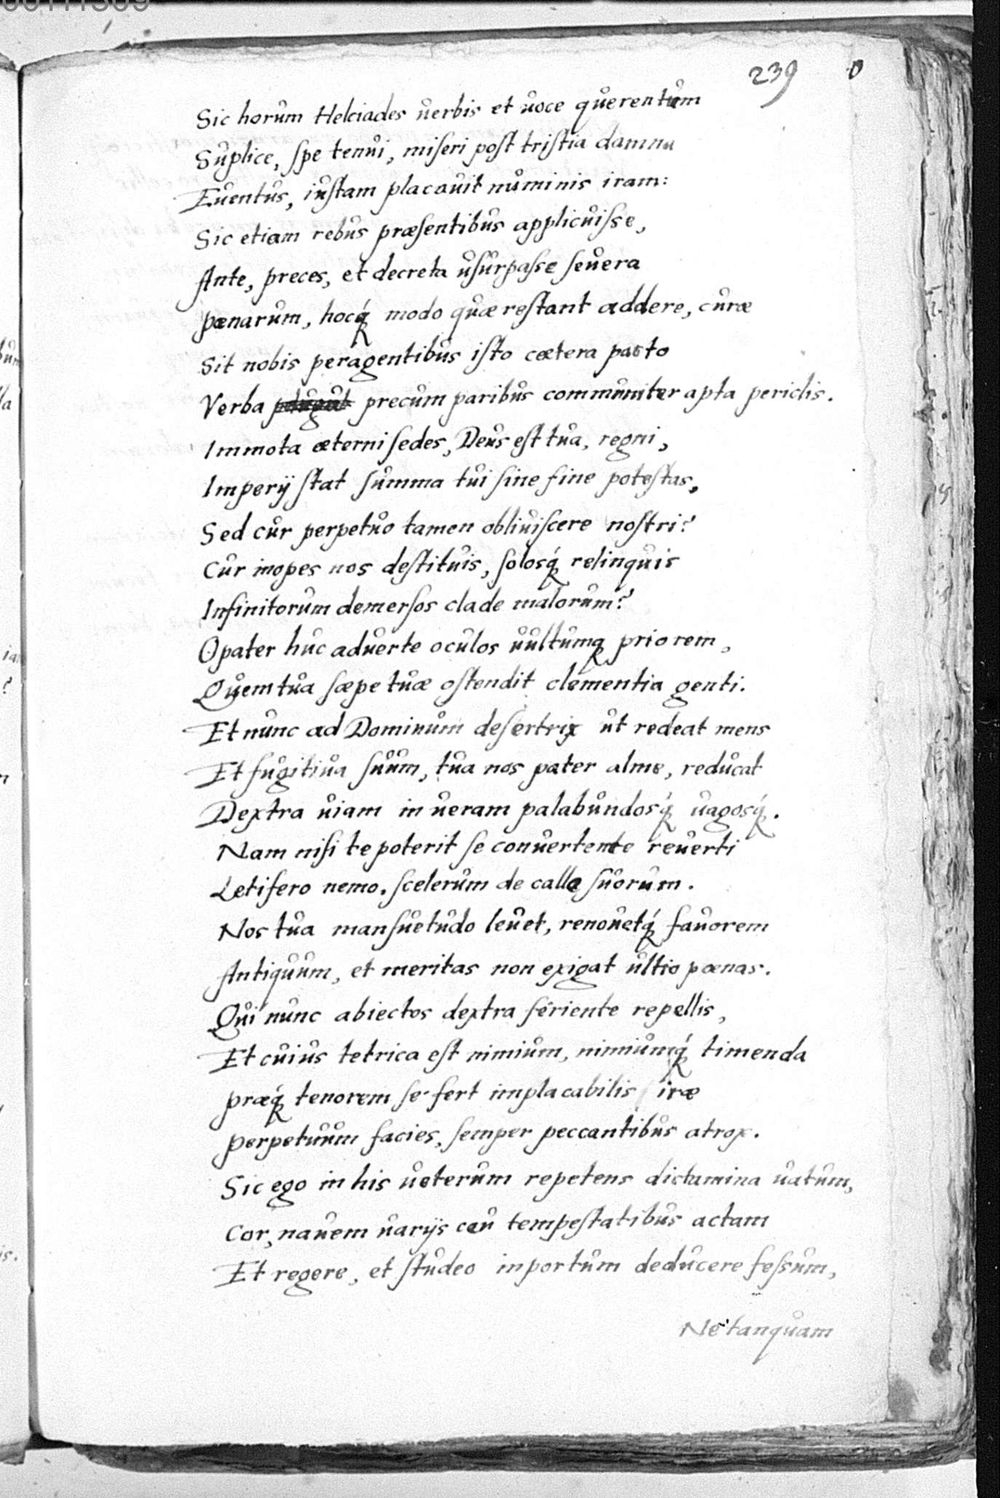 239
Sic horum Helciades uerbis et uoce querentum
Suplice, spe tenui, miseri post tristia damna
Euentus, iustam placauit numinis iram:
Sic etiam rebus præsentibus applicuisse,
Ante, preces, et decreta usurpasse seuera
Pœnarum, hocq́ modo quæ restant addere, curæ
Sit nobis peragentibus isto cætera pacto
Verba precum paribus communiter apta periclis.
Immota æterni sedes, Deus est tua, regni,
Imperij stat summa tui sine fine potestas,
Sed cur perpetuo tamen obliuiscere nostri?
Cur inopes nos destituis, solosq́ relinquis
Infinitorum demersos clade malorum?
O pater huc aduerte oculos uultumq priorem,
Quem tua sæpe tuæ ostendit clementia genti.
Et nunc ad Dominum desertrix ut redeat mens
Et fugitiua suum, tua nos pater alme, reducat
Dextra uiam in ueram palabundosq́ uagosq́.
Nam nisi te poterit se conuertente reuerti
Letifero nemo. scelerum de calle suorum.
Nos tua mansuetudo leuet, renouetq́ fauorem
Antiquum, et meritas non exigat ultio pœnas.
Qui nunc abiectos dextra feriente repellis,
Et cuius tetrica est nimium, nimiumq́ timenda
Præq́ tenorem se fert implacabilis iræ
Perpetuum facies, semper peccantibus atrox.
Sic ego in his ueterum repetens dictamina uatum,
Cor, nauem uarijs ceu tempestatibus actam
Et regere, et studeo in portum deducere fessum,
Ne tanquam